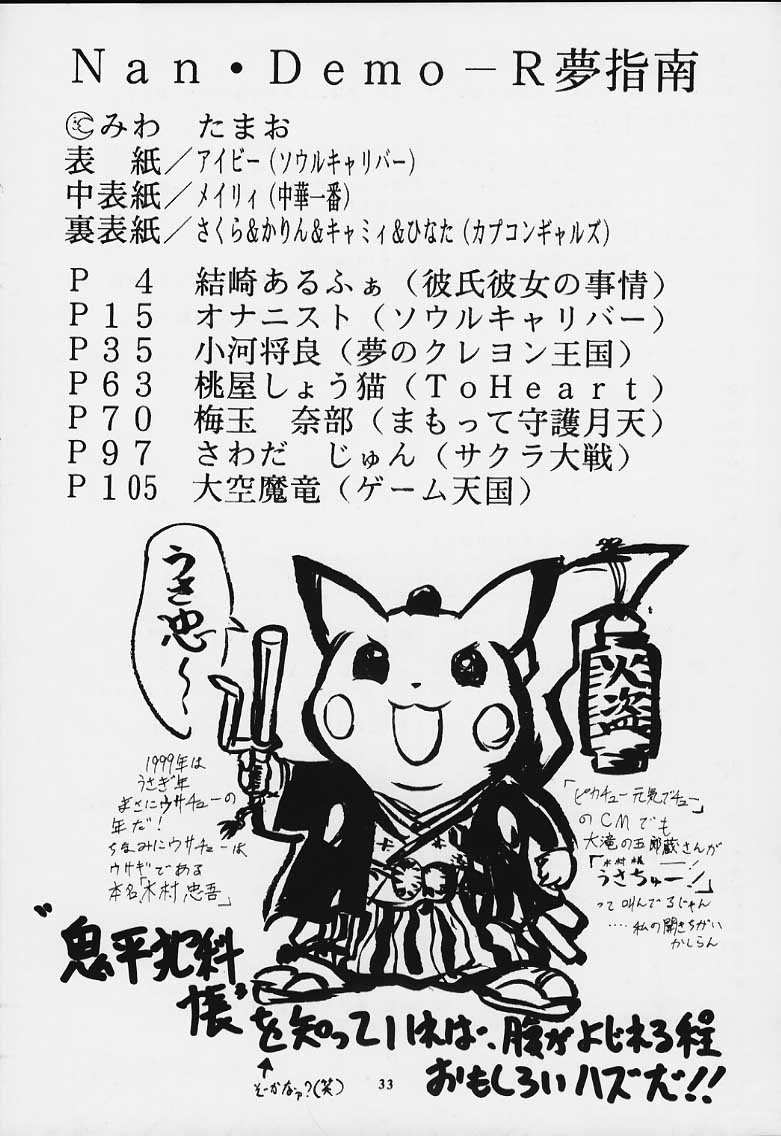 Nan・Demo－R夢指南
©みわ　たまお
表　紙／アイビー（ソウルキャリバー）
中表紙／メイリィ（中華一番）
裏表紙／さくら&かりん&キャミィ&ひなた（カプコンギャルズ）
P　4　結崎あるふぁ（彼氏彼女の事情）
P15　オナニスト（ソウルキャリバー）
P35　小河将良（夢のクレヨン王国）
P63　桃屋しょう猫（ToHeart）
P70　梅玉　奈部（まもって守護月天）
P97　さわだ　じゅん（サクラ大戦）
P105　大空魔竜（ゲーム天国）
うさ忠～
火盗
1999年は
うさぎ年
まさにウサチューの
年だ!
ちなみにウサチューは
ウサギである
本名「木村忠吾」
「ピカチュー元気でチュー」
のCMでも
大滝の五郎蔵さんが
「うさちゅー!」
って叫んでるじゃん
…私の聞きちがい
かしらん
"鬼平犯科
帳"を知っていれば、腹がよじれる程
おもしろいハズだ!!
↑
そーかなァ?(笑)
33